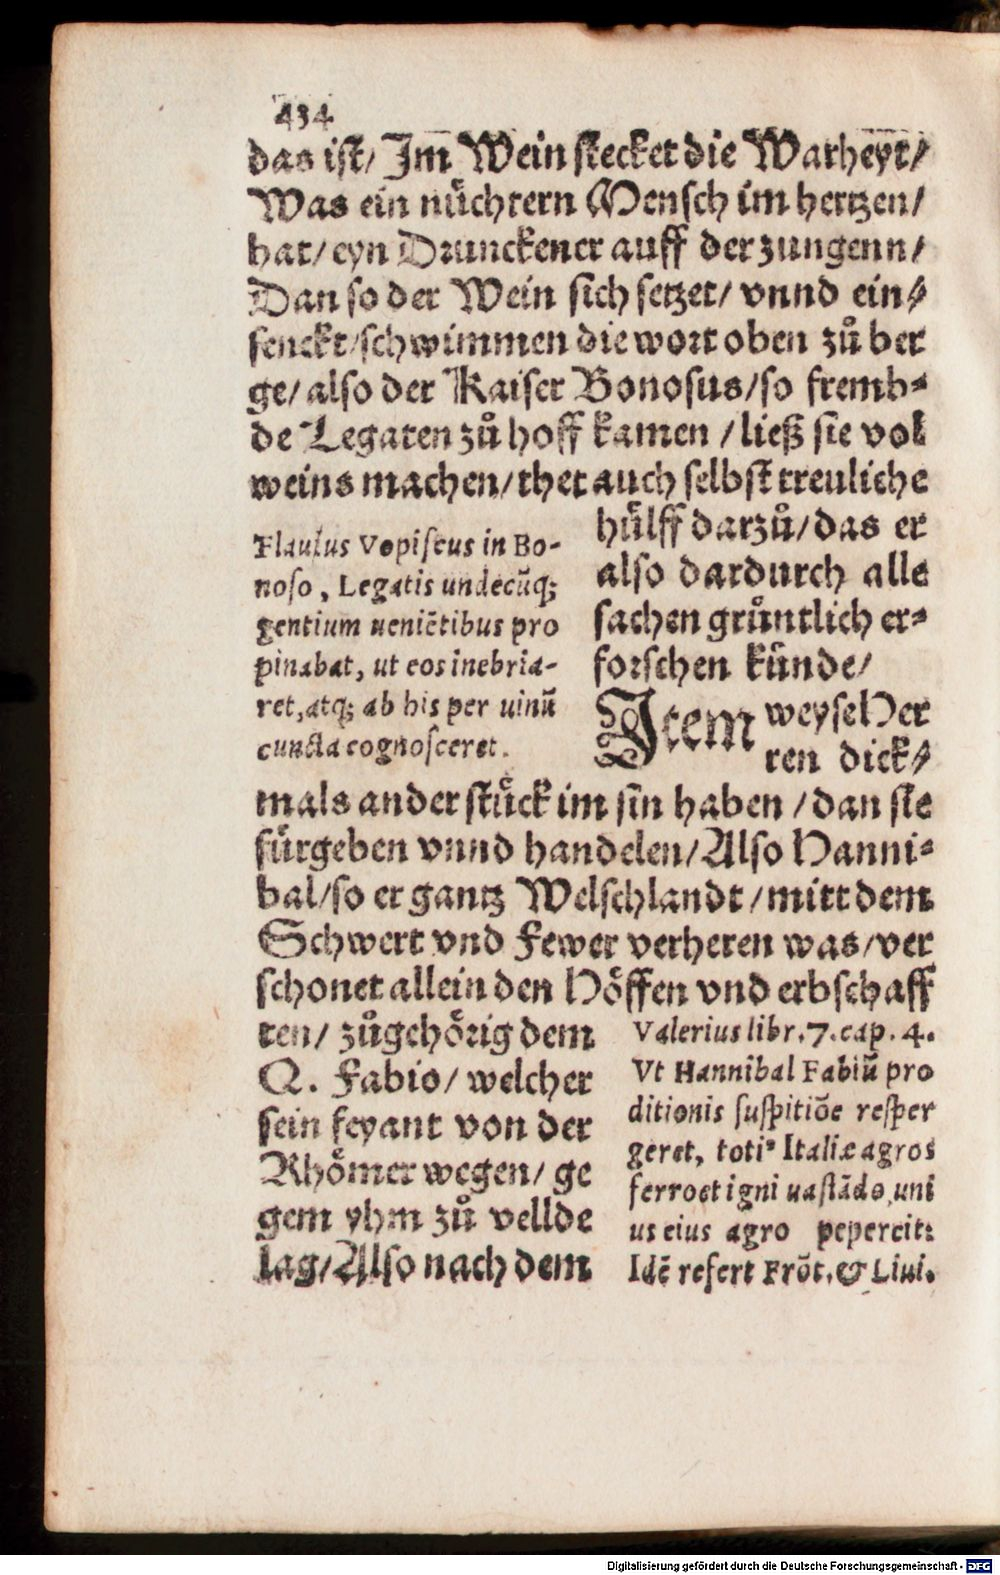 434
das ist/ Jm Wein stecket die Warheyt/
Was ein nuͤchtern Mensch im hertzen/
hat/ eyn Drunckener auff der zungenn/
Dan so der Wein sich setzet/ vnnd ein⸗
senckt/schwimmen die wort oben zuͦ ber
ge/ also der Kaiser Bonosus/so fremb⸗
de Legaten zuͦ hoff kamen /ließ sie vol
weins machen/thet auch selbst treuliche
huͤlff darzuͦ/das er
also dardurch alle
sachen gruͤntlich er⸗
forschen kuͤnde/
Flauius Vopiscus in Bo-
noso, Legatis undecūq;
gentium ueniētibus pro
pinabat, ut eos inebria-
ret,atq; ab his per uinū
cuncta cognosceret.
Jtem weyse Her
ren dick⸗
mals ander stuͤck im sin haben /dan sie
fuͤrgeben vnnd handelen/Also Hanni⸗
bal/so er gantz Welschlandt/mitt dem
Schwert vnd Fewer verheren was/ver
schonet allein den Hoͤffen vnd erbschaff
ten/ zuͦgehoͤrig dem
Q. Fabio/ welcher
sein feyant von der
Rhoͤmer wegen/ ge
gem yhm zuͦ vellde
lag/Also nach dem
Valerius libr.7.cap.4.
Vt Hannibal Fabiū pro
ditionis suspitiōe resper
geret, totiꝰ Italiæ agros
ferro et igni uastādo,uni
us eius agro pepercit:
Idē refert Frōt.& Liui.
Digitalisierung gefördert durch die Deutsche Forschungsgemeinschaft - DFG